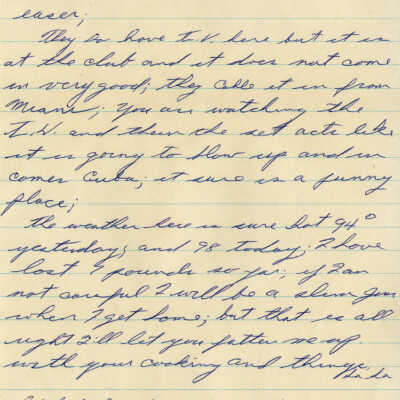 easer;
They do have T.V. here but it is
at the club and it does not come
in very good; they cable it in from
Miami; you are watching the
T.V. and then the set acts like
it is going to blow up and in
comes Cuba; it sure is a funny
place;
the weather here is sure hot 94°
yesterday; and 98 today; I have
lost 9 pounds so far; if I am
not careful I will be a slim Jim
when I get home; but that is all
right I'll let you fatten me up
with your cooking and things
Ha Ha